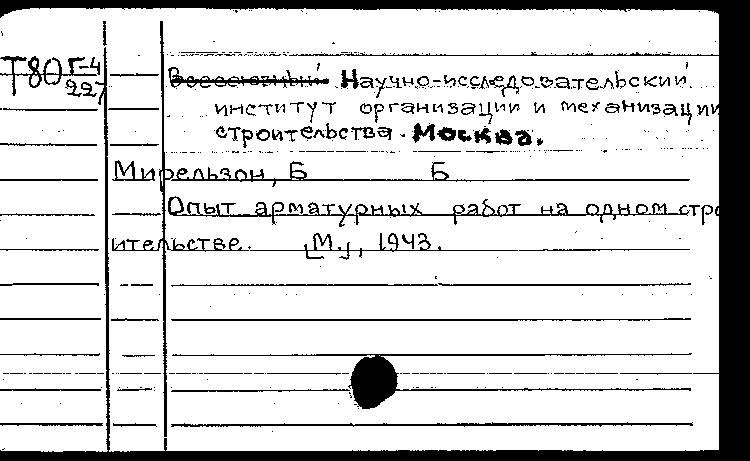 Т80 Г-4
227
Всесоюзный Научно-исследовательский
институт организации и механизации
строительства. Москва.
Мирельзон, Б Б
Опыт арматурных работ на одном стро
ительстве. [М.], 1943.